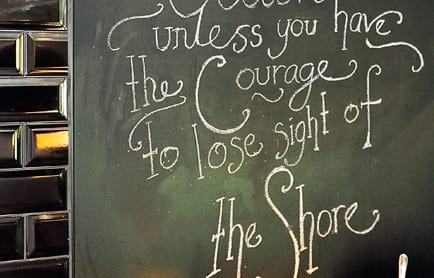 unless you have
the Courage
to lose sight of
the Shore